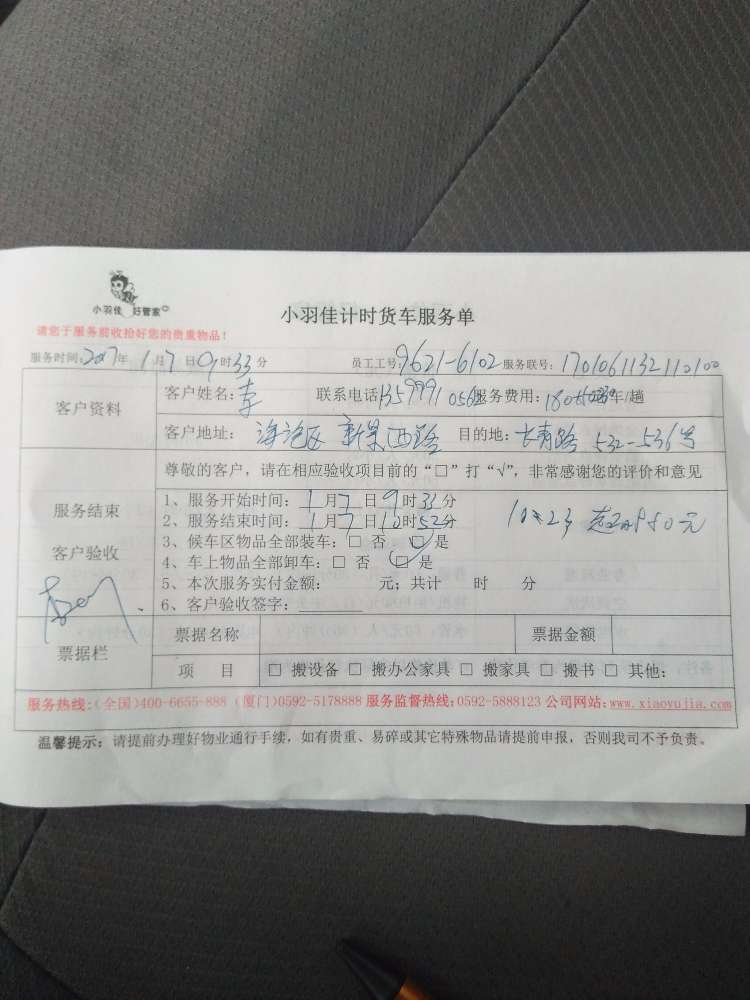 小羽佳 好管家
小羽佳计时货车服务单
请您于服务前收拾好您的贵重物品!
服务时间:2017年1月7日9时33分 员工工号:9621-6102 服务联号:1701061132110100
客户资料
客户姓名:李 联系电话 服务费用:180 车/趟
客户地址: 海沧区 新景西路 目的地:长青路 532-536号
尊敬的客户,请在相应验收项目前的“□”打“√”,非常感谢您的评价和意见
服务结束
客户验收
1、服务开始时间:1月7日9时33分
2、服务结束时间:1月7日10时52分
3、候车区物品全部装车:□ 否 □ 是
4、车上物品全部卸车:□ 否 □ 是
5、本次服务实付金额: 元;共计 时 分
6、客户验收签字:
票据栏
票据名称 票据金额
项 目 □ 搬设备 □ 搬办公家具 □ 搬家具 □ 搬书 □ 其他:
服务热线:(全国)400-6655-888 (厦门)0592-5178888 服务监督热线:0592-5888123 公司网站:www.xiaoyujia.com
温馨提示:请提前办理好物业通行手续,如有贵重、易碎或其它特殊物品请提前申报,否则我司不予负责。